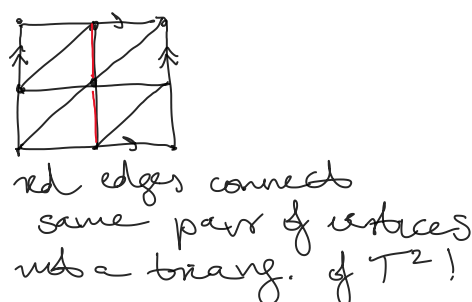 red edges connect
same pair of vertices
not a triang. of T²!